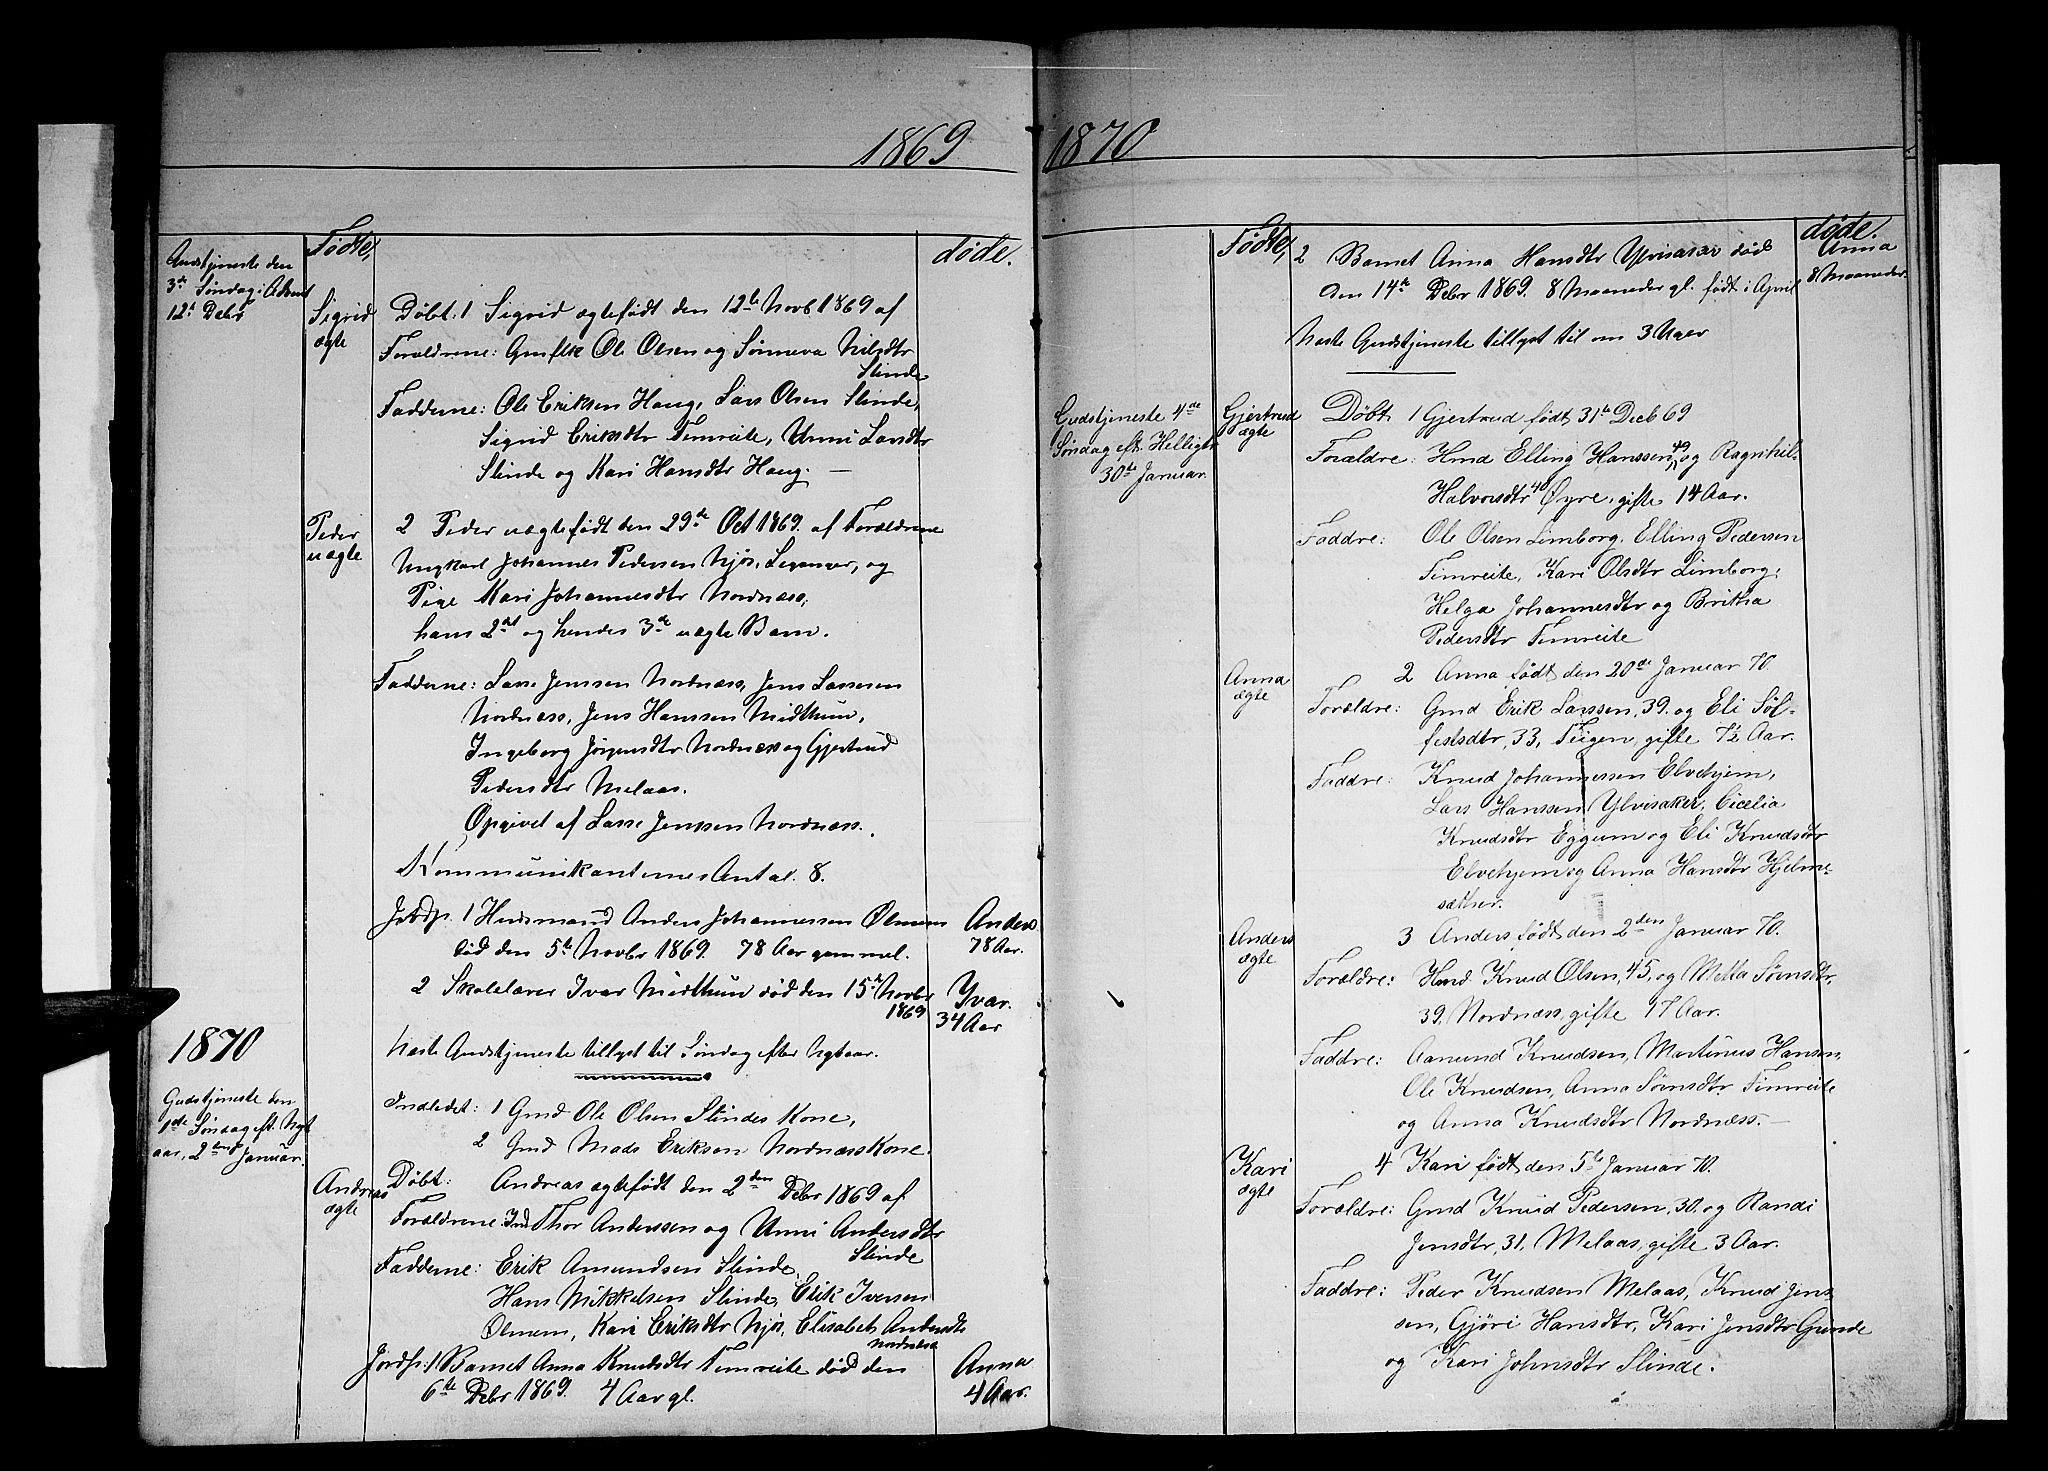 1869
Fødte,
døde.
Gudstjeneste den
3de Søndag i Advent
12te Debr
Sigrid
ægte
Døbt: 1 Sigrid ægtefødt den 12te Novb 1869 af
Forældrene: Gmd Ole Olsen og Sønneva Nilsdtr
Slinde
Fadderne: Ole Eriksen Haug, Lars Olsen Slinde,
Sigrid Eriksdtr Timreite, Unni Larsdtr
Slinde og Kari Hansdtr Haug. —
Peder
uægte
2 Peder uægtefødt den 29de Oct 1869. af Forældrene
Ungkarl Johannes Pedersen Njøs, Leganger, og
Pige Kari Johannesdtr Nordnæss,
hans 2det og hendes 3de uægte Barn.
Fadderne: Lasse Jenssen Nordnæss, Jens Lassesen
Nordnæss, Jens Hanssen Midthun,
Ingeborg Jørgensdtr Nordnæss og Gjertrud
Pedersdtr Melaas.
Opgivet af Lasse Jenssen Nordnæss.
Kommunikanternes Antal. 8.
Jordf. 1 Huusmand Anders Johannessen Ølmem
død den 5te Novbr 1869. 78 Aar gammel.
Anders
78 Aar.
2 Skolelærer Ivar Midthun død den 15de Novbr
1869
Yvar.
34 Aar
Næste Gudstjeneste tillyst til Søndag efter Nytaar.
1870
Gudstjeneste den
1ste Søndag eft. Nyt
aar, 2den Januar.
Indledet: 1 Gmd Ole Olsen Slindes Kone,
2 Gmd Mads Eriksen Nordnæss Kone.
Andreas
ægte
Døbt: Andreas ægtefødt den 2den Debr 1869 af
Forældrene: Ind Thor Anderssen og Unni Andersdtr
Slinde
Fadderne: Erik Amundsen Slinde,
Hans Mikkelsen Slinde, Erik Iversen
Ølmem, Kari Eriksdtr Njøs, Elisabet Andersdtr
Nordnæss
Jordf: 1 Barnet Anna Knudsdtr Timreite død den
6te Debr 1869. 4 Aar gl.
Anna
4 Aar.
1870
Fødte,
døde.
2 Barnet Anna Hansdtr Ylvisaker død
den 14de Debr 1869. 8 Maaneder gl. født i April
Anna
8 Maaneder
Næste Gudstjeneste tillyst til om 3 Uger
Gudstjeneste 4de
Søndag eft. Helligtr
30te Januar.
Gjertrud
ægte
Døbt 1 Gjertrud født 31te Decb 69
Forældre: Hmd Elling Hanssen, 49, og Ragnhil-
Halvorsdtr 40 Øyre, gifte 14 Aar.
Faddre: Ole Olsen Limborg, Elling Pedersen
Timreite, Kari Olsdtr Limborg,
Helga Johannesdtr og Britha
Pedersdtr Timreite
Anna
ægte
2 Anna født den 20de Januar 70.
Forældre: Gmd Erik Larssen, 39. og Eli Søl-
festsdtr, 33, Teigen, gifte 7½ Aar.
Faddre: Knud Johannessen Elvehjem,
Lars Hanssen Ylvisaker, Cicelia
Knudsdtr Eggum og Eli Knudsdtr
Elvehjem og Anna Hansdtr Hjelme-
sæther.
Anders
ægte
3 Anders født den 2den Januar 70.
Forældre: Hmd. Knud Olsen, 45, og Metta Sønsdtr,
39. Nordnæss, gifte 17 Aar.
Faddre: Aamund Knudsen, Martinus Hansen,
Ole Knudsen, Anna Sønsdtr Timreite
og Anna Knudsdtr Nordnæss. —
Kari
ægte
4 Kari født den 5te Januar 70.
Forældre: Gmd Knud Pedersen, 30. og Randi
Jensdtr, 31, Melaas, gifte 3 Aar.
Faddre: Peder Knudsen Melaas, Knud Jens-
sen, Gjøri Hansdtr, Kari Jensdtr Grinde
og Kari Johnsdtr Slinde.